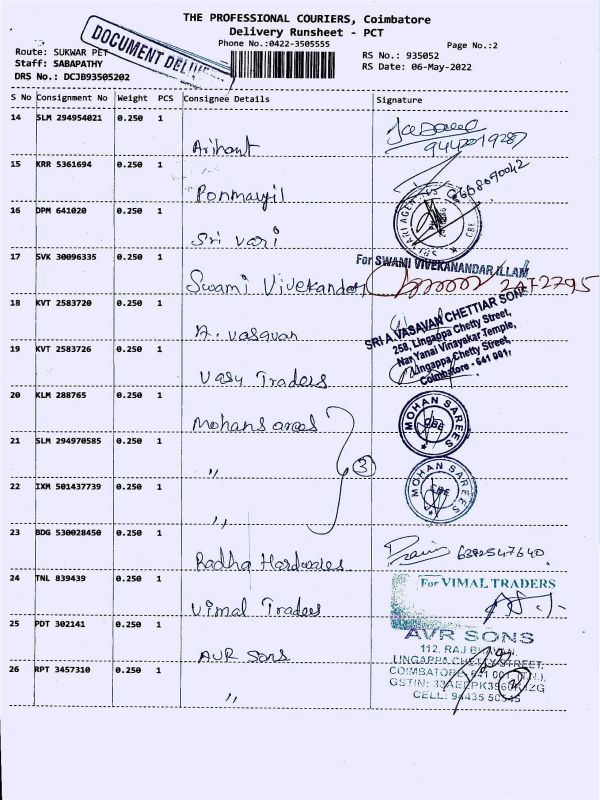 THE PROFESSIONAL COURIERS, Coimbatore
Delivery Runsheet - PCT
Phone No.:0422-3505555
Page No.:2
DOCUMENT
Route: SUKWAR PET
Staff: SABAPATHY
DRS No.: DCJB93505202
RS No.: 935052
RS Date: 06-May-2022
S No Consignment No Weight PCS Consignee Details Signature
14 SLM 294954021 0.250 1 Arihant
9444019287
15 KRR 5361694 0.250 1 Ponmayil
16 DPM 641020 0.250 1 Sri Vari
CBE
17 SVK 30096335 0.250 1 Swami
For SWAMI VIVEKANANDAR ILLAM
18 KVT 2583720 0.250 1 A. Vasavan
SRI A.VASAVAN CHETTIAR SONS
258, Lingappa Chetty Street,
Nar Yanai Vinayakar Temple,
Lingappa Chetty Street,
Coimbatore - 641 001.
19 KVT 2583726 0.250 1 Vasu Traders
20 KLM 288765 0.250 1 Mohan Sarees
MOHAN SAREES
CBE
3
21 SLM 294970585 0.250 1 "
MOHAN SAREES
CBE
22 IXM 501437739 0.250 1 "
23 BDG 530028450 0.250 1 Radha Hardwares
24 TNL 839439 0.250 1 Vimal Traders
For VIMAL TRADERS
25 PDT 302141 0.250 1 AVR Sons
AVR SONS
112, RAJ BHAVAN,
LINGAPPA CHETTY STREET,
COIMBATORE - 641 001 (T.N.),
GSTIN:
CELL: 94435
26 RPT 3457310 0.250 1 "
2